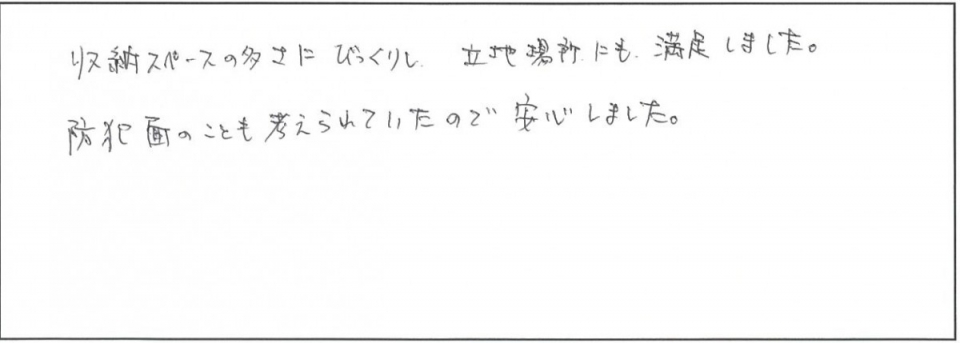 収納スペースの多さにびっくりし 立地場所にも満足しました。
防犯面のことも考えられていたので安心しました。